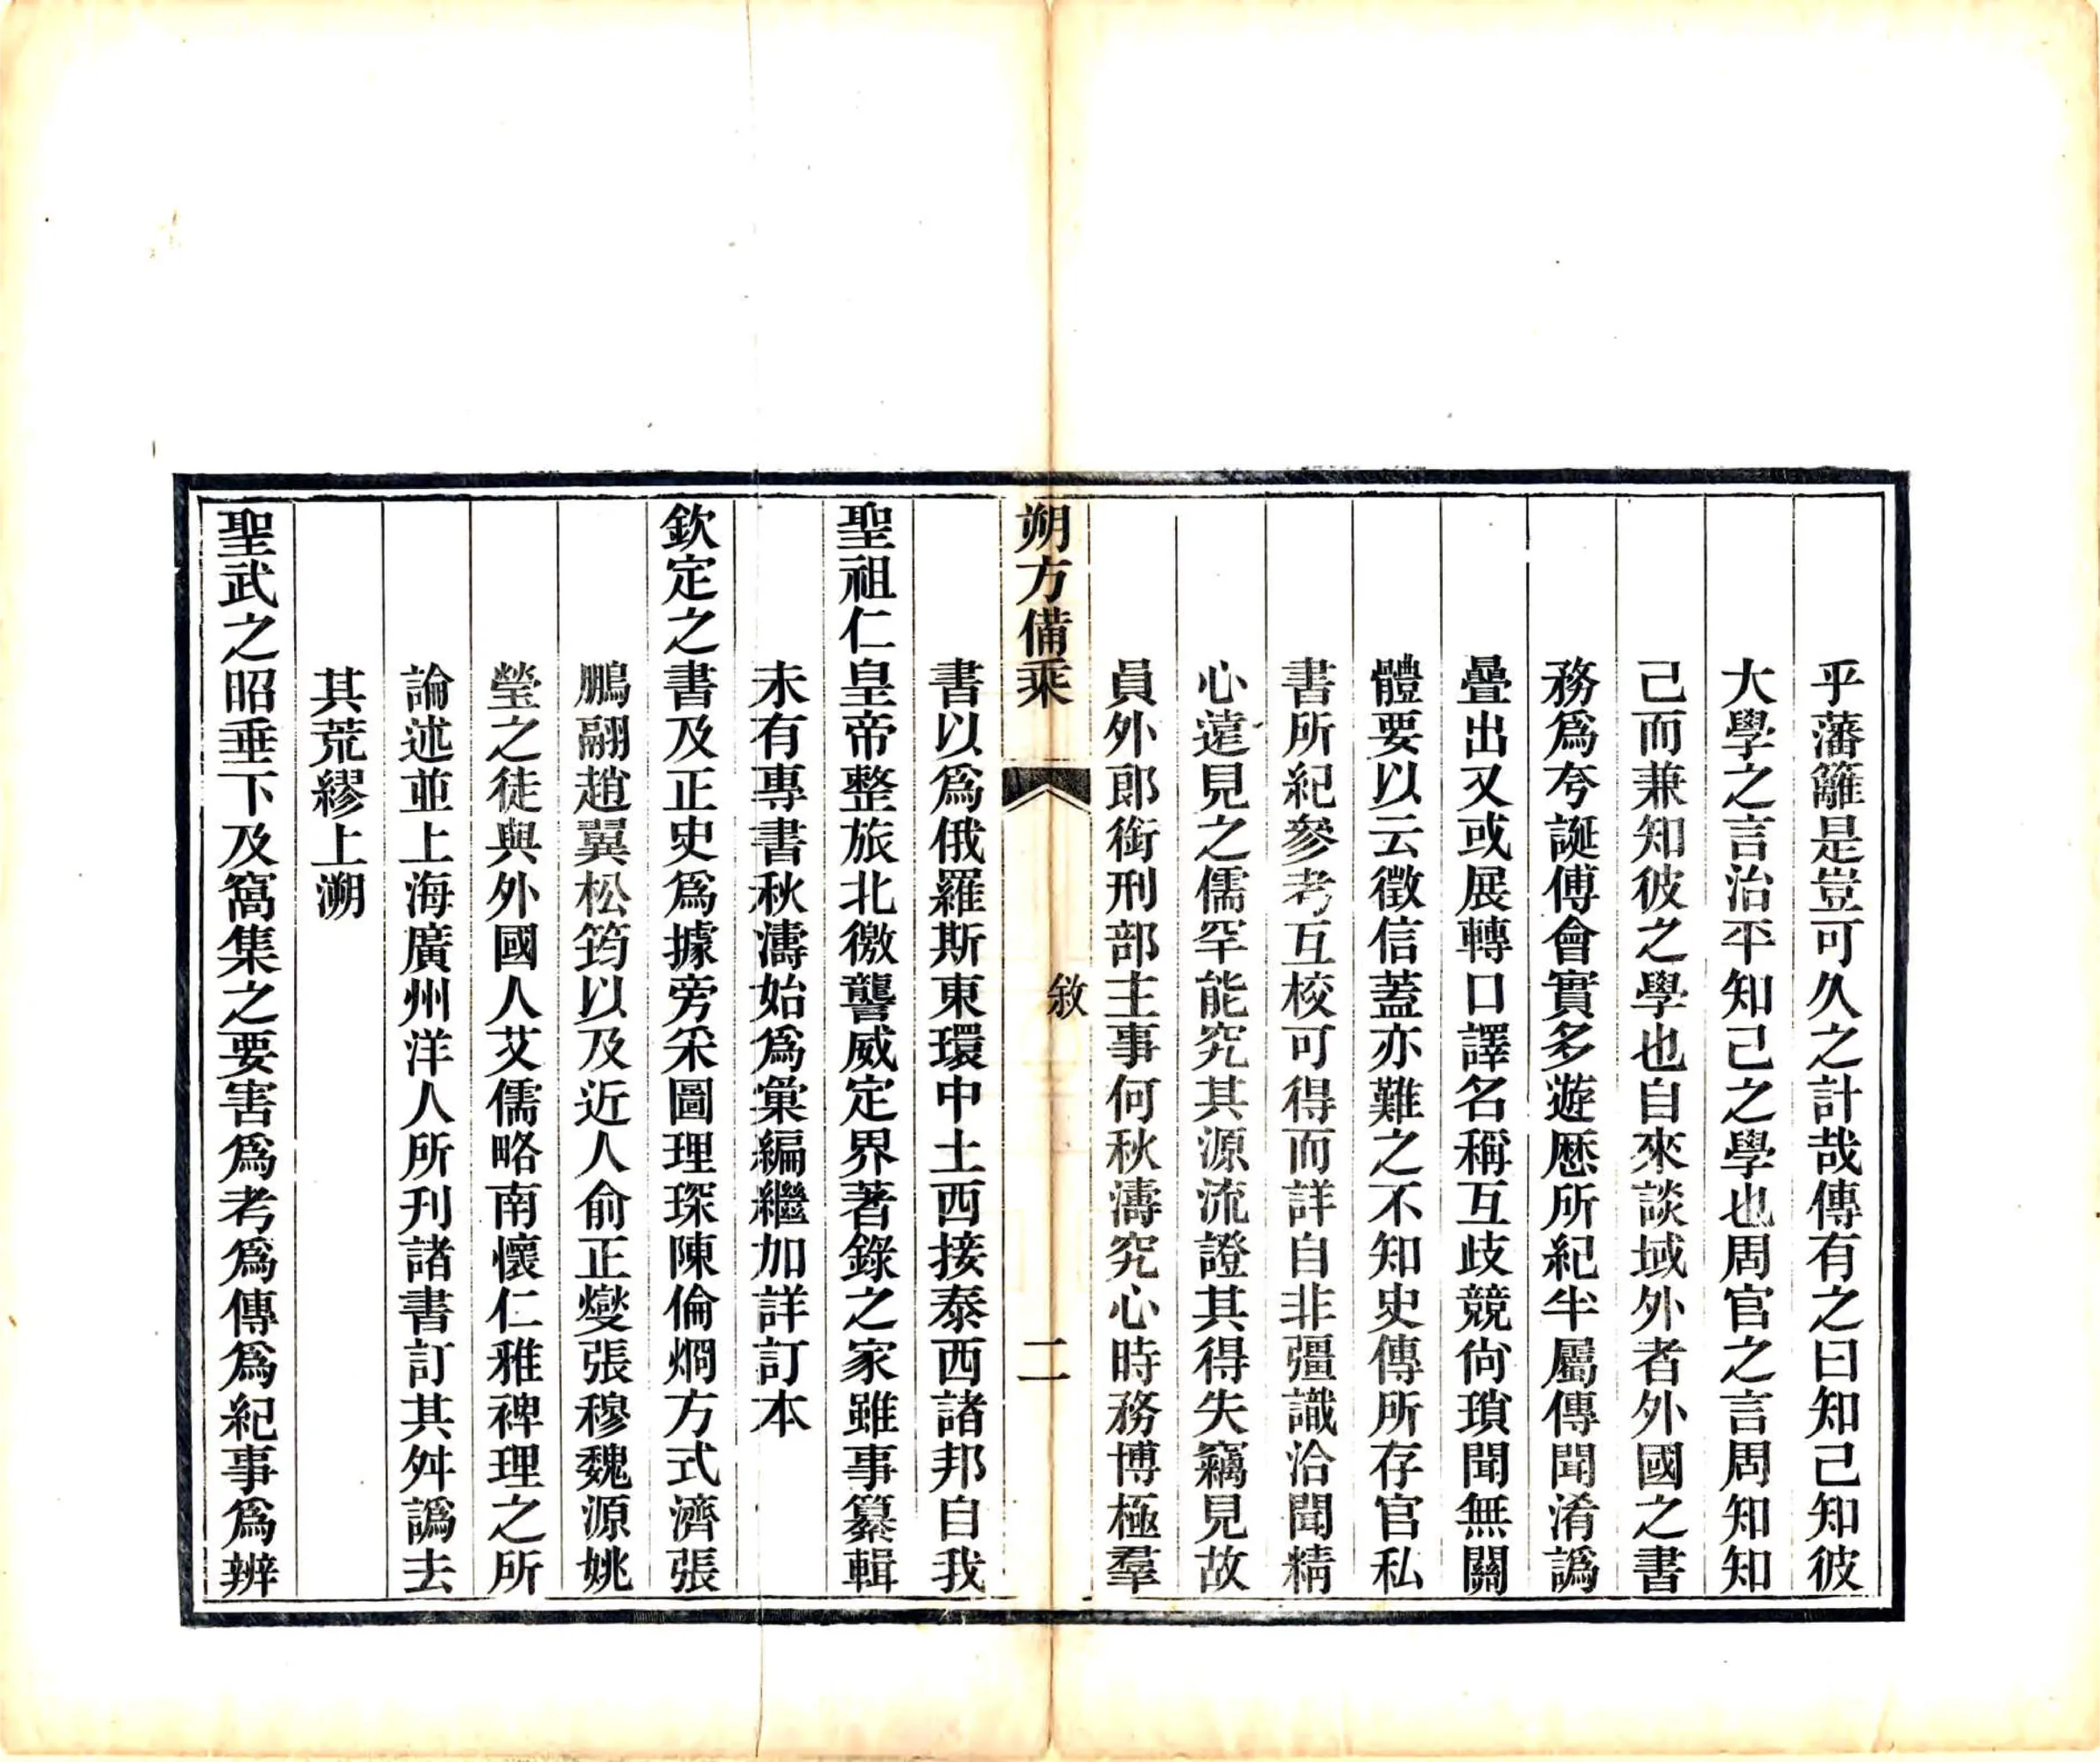 乎藩籬是豈可久之計哉傳有之曰知己知彼
大學之言治平知己之學也周官之言周知知
己而兼知彼之學也自來談域外者外國之書
務爲夸誕傅會實多遊歷所紀半屬傳聞淆譌
疊出又或展轉口譯名稱互歧競尙瑣聞無關
體要以云徵信蓋亦難之不知史傳所存官私
書所紀參考互校可得而詳自非彊識洽聞精
心遠見之儒罕能究其源流證其得失竊見故
員外郎銜刑部主事何秋濤究心時務博極羣
朔方備乘 敘 二
書以爲俄羅斯東環中土西接泰西諸邦自我
聖祖仁皇帝整旅北徼讋威定界著錄之家雖事纂輯
未有專書秋濤始爲彙編繼加詳訂本
欽定之書及正史爲據旁采圖理琛陳倫炯方式濟張
鵬翮趙翼松筠以及近人俞正燮張穆魏源姚
瑩之徒與外國人艾儒略南懷仁雅裨理之所
論述並上海廣州洋人所刋諸書訂其舛譌去
其荒繆上溯
聖武之昭垂下及窩集之要害爲考爲傳爲紀事爲辨